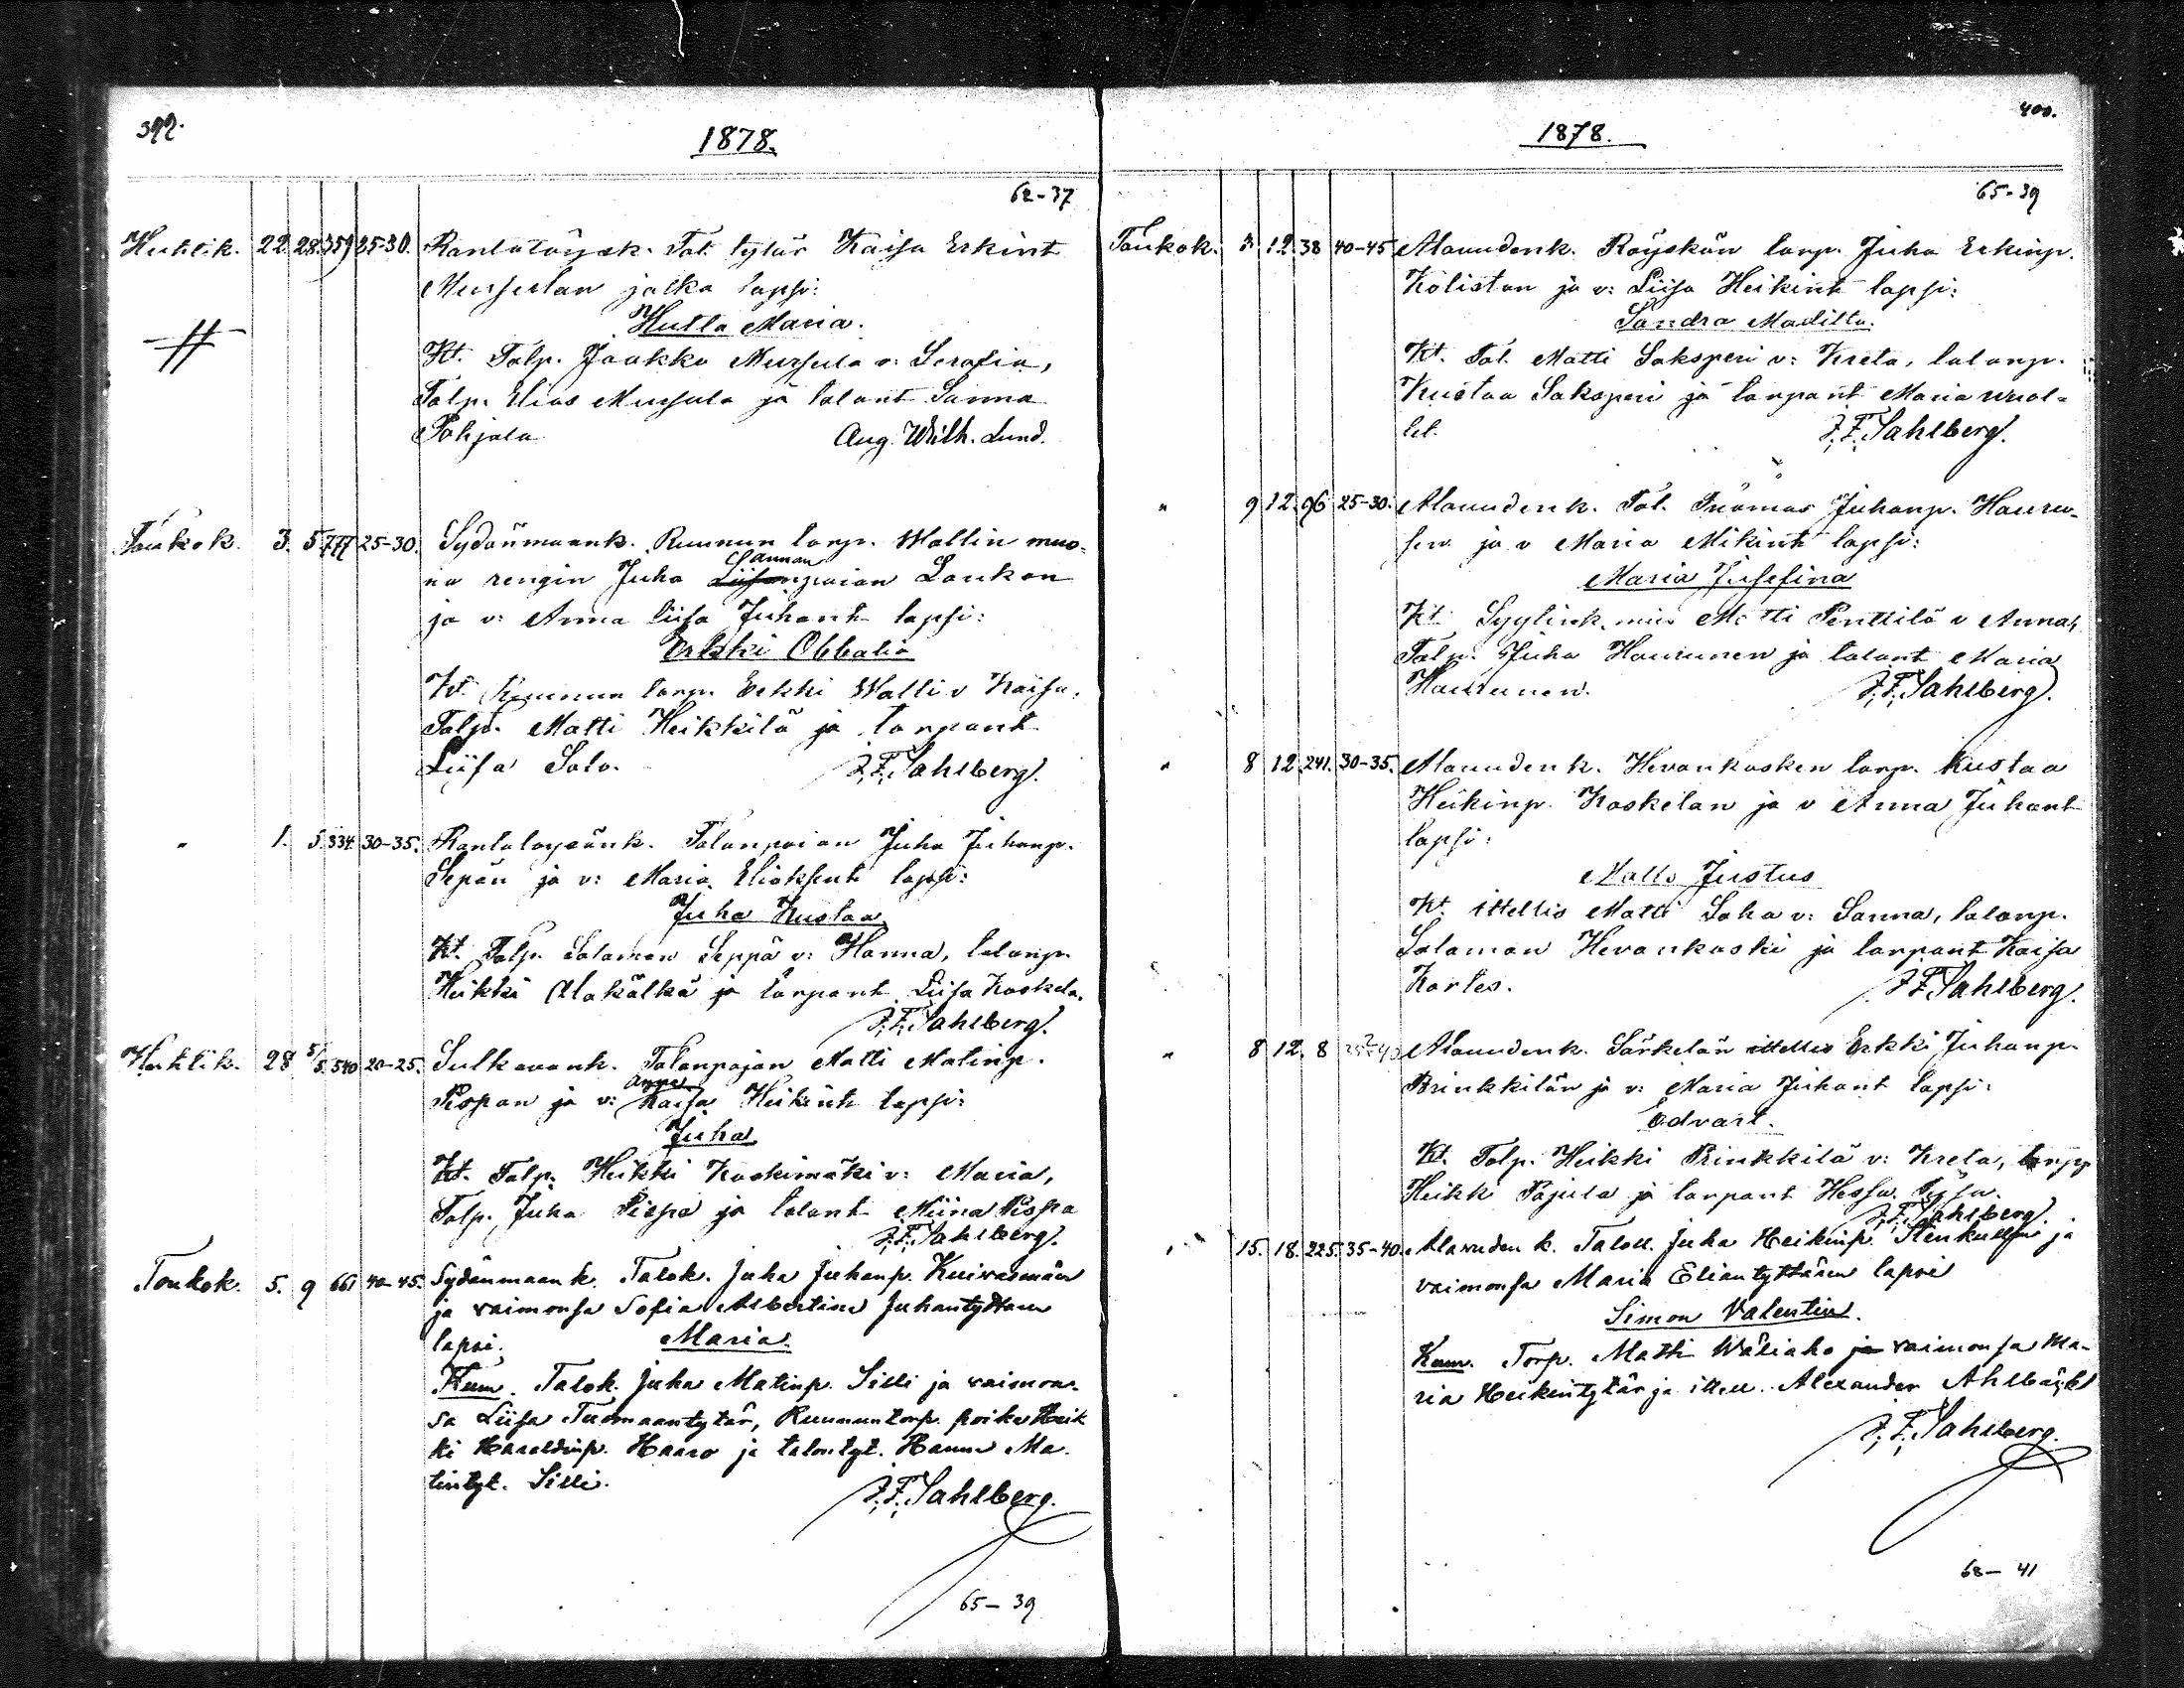 399.
1878.
62-37
Huhtik. 22. 28. 359 25-30. Rantatöysäk. Tal. tytär Kaisa Erkint
Mursulan jalka lapsi:
Hulta Maria.
Kt. Talp. Jaakko Mursula v: Serafia,
Talp. Elias Mursula ja talont Sanna
Pohjola. Aug. Wilh. Lund.
Toukok. 3. 5. 777 25-30. Sydänmaank. Ruunun torp. Wallin muo-
na rengin Juho Liisanpoian Sannan Laukon
ja v: Anna Liisa Juhont lapsi:
Erkki Obbalia
Kt. Ruunun torp. Erkki Walli v Kaisa,
Talp. Matti Heikkilä ja torpant
Liisa Salo. J.F. Sahlberg.
" 1. 5. 334 30-35. Rantatöysänk. Talonpoian Juho Juhonp.
Sepän ja v: Maria Eliaksent lapsi:
Juho Kustaa
Kt. Talp. Salomon Seppä v: Hanna, talonp.
Heikki Alakälkä ja torpant Liisa Koskela.
J.F. Sahlberg.
Huhtik. 28 5/5. 540 20-25. Sulkavank. Talonpojan Matti Matinp.
Pispan ja v: Kaisa Anna Heikint lapsi:
Juha
Kt. Talp. Heikki Koskimäki v: Maria,
Talp. Juha Pispa ja talont Miina Pispa
J.F. Sahlberg.
Toukok. 5. 9 661 40-45. Sydänmaan k. Talok. Juha Juhanp. Kuivasmäen
ja vaimonsa Sofia Albertina Juhantyttären
lapsi. Maria.
Kum. Talok. Juha Matinp. Silli ja vaimon-
sa Liisa Tuomaantytär, Ruunun torp. poika Heik
ki Haraldinp. Haaro ja talontyt. Hanna Ma-
tintyt. Silli. J.F. Sahlberg.
65-39
400.
1878.
65-39
Toukok. 3 12. 38 40-45 Alavudenk. Röyskön torp. Juho Erkinp.
Kolistan ja v: Liisa Heikint lapsi:
Sandra Matilta.
Kt. Tal. Matti Saksperi v: Kreta, talonp.
Kustaa Saksperi ja torpant Maria Wuol-
let. J.F. Sahlberg.
" 9 12. 96 25-30. Alavudenk. Tal. Tuomas Juhonp. Hauru-
sen ja v Maria Mikint lapsi:
Maria Jusefina
Kt. Syylink. mies Matti Penttilä v Anna,
Talp. Juho Haurunen ja talont Maria
Haurunen. J.F. Sahlberg.
" 8 12. 241. 30-35. Alavudenk. Hevonkosken torp. Kustaa
Heikinp. Koskelan ja v Anna Juhont
lapsi:
Matts Justus
Kt. ittellis Matti Saha v: Sanna, talonp.
Salomon Hevonkoski ja torpant Kaisa
Kortes. J.F. Sahlberg.
" 8 12. 8 Alavudenk. Särkelän ittellis Erkki Juhonp.
Brinkkilän ja v: Maria Juhont lapsi:
Edvart.
Kt. Talp. Heikki Prinkkilä v: Kreta, torpp
Heikk Pajula ja torpant Hessa.
J.F. Sahlberg.
" 15. 18. 225. 35-40. Alavuden k. Talok. Juha Heikinp. Stenkullan ja
vaimonsa Maria Eliantyttären lapsi
Simon Valentin.
Kum. Torp. Matti Wäliaho ja vaimonsa Ma-
ria Heikintytär ja ittell. Alexander Ahlbäck
J.F. Sahlberg.
68-41